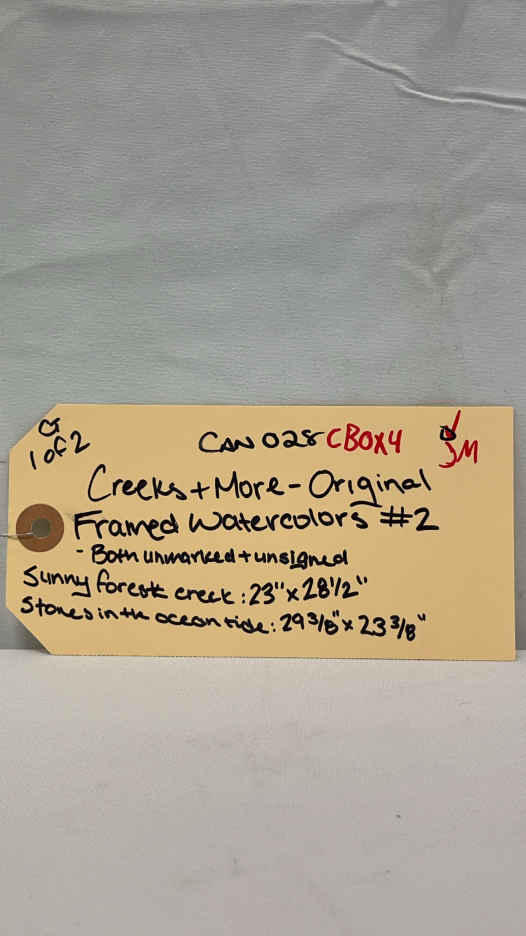 1 of 2
CAN 028 CBOX4 JM
Creeks + More - Original
Framed Watercolors #2
- Both unmarked + unsigned
Sunny forest creek: 23" x 28 1/2"
Stones in the ocean tide: 29 3/8" x 23 3/8"